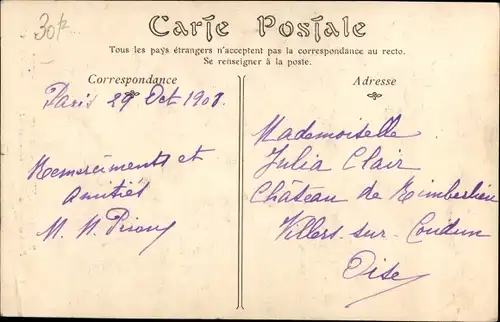 30f
Carte Postale
Tous les pays étrangers n'acceptent pas la correspondance au recto.
Se renseigner à la poste.
Correspondance
Paris 29 Oct 1908.
Remerciments et
Amitiés
M. M.
Adresse
Mademoiselle
Julia Clair
Château de Rimberlieu
Villers-sur-Coudun
Oise